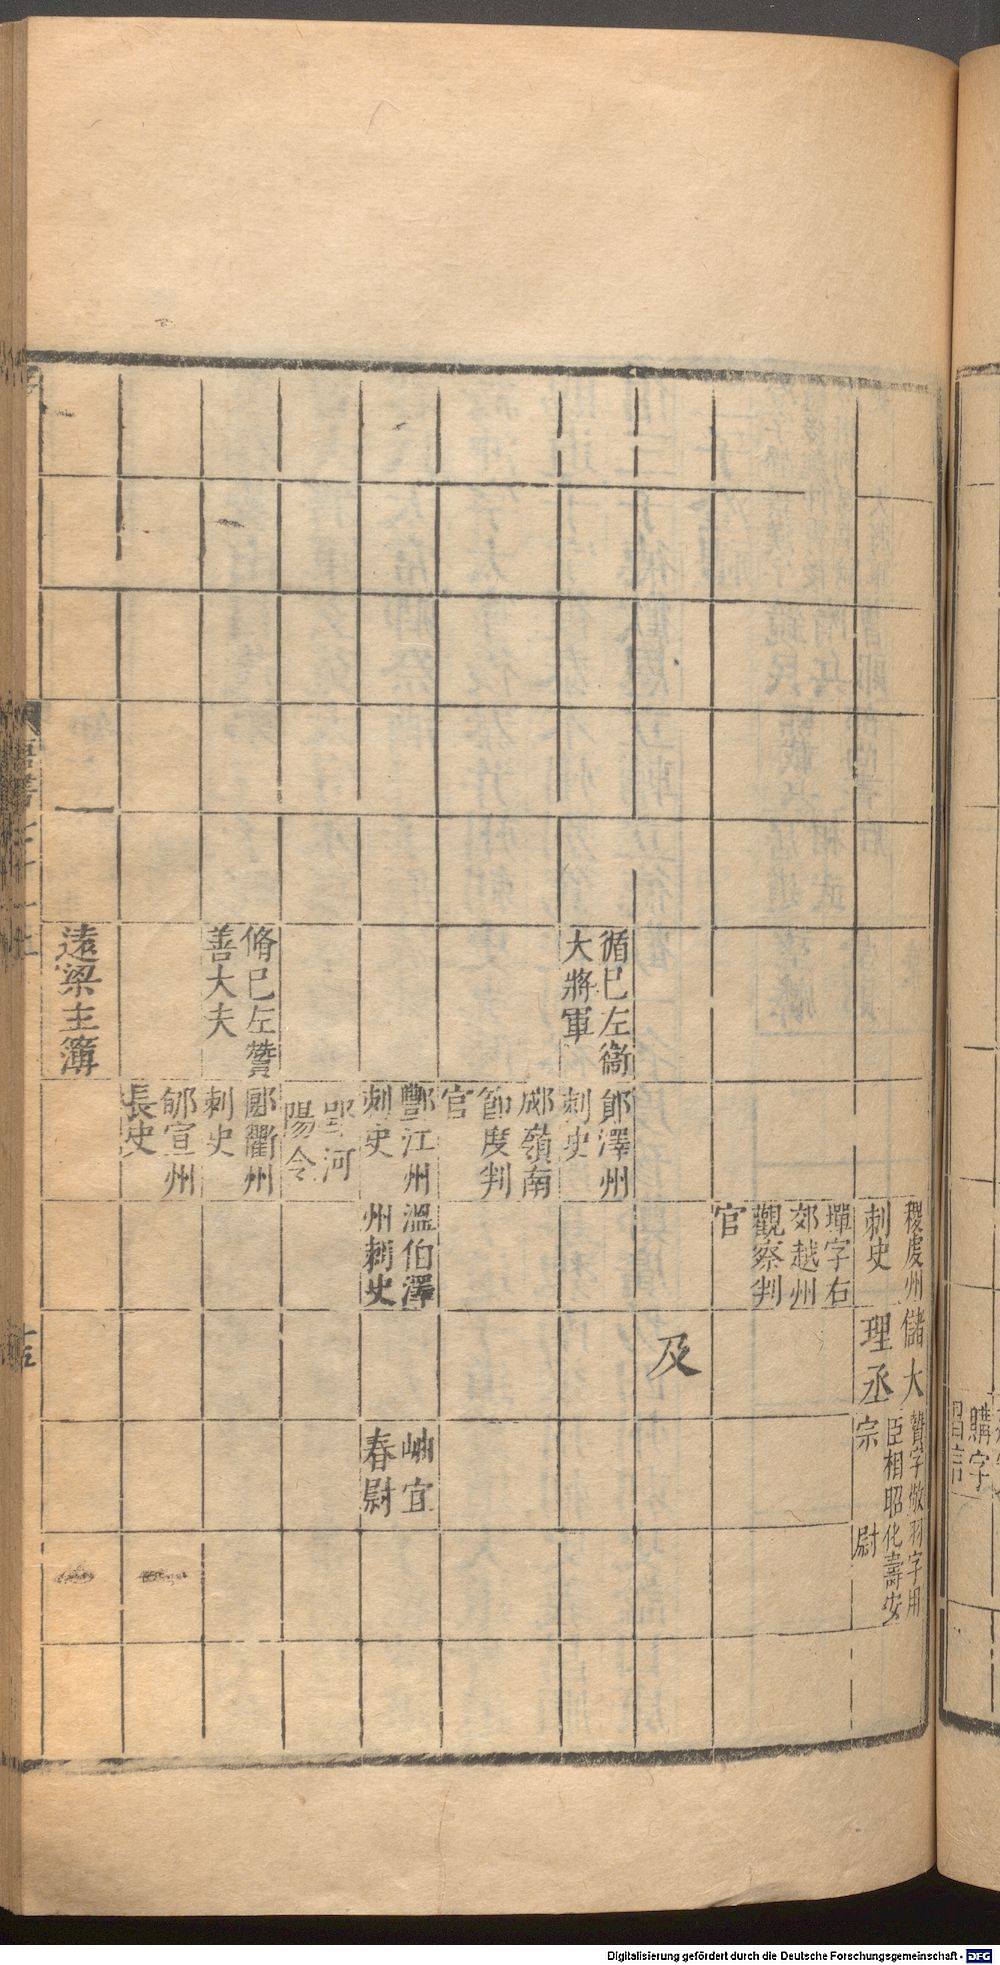 循巳左衞
大將軍
脩巳左贊
善大夫
遠梁主簿
鄖澤州
刺史
郕嶺南
節度判
官
酆江州
刺史
郢河
陽令
郾衢州
刺史
郇宣州
長史
稷虔州
刺史
墠字右
郊越州
觀察判
官
溫伯澤
州刺史
儲大
理丞
及
贊字敬
臣相昭
宗
岫宜
春尉
羽字用
化壽安
尉
唐書七十一上
十五
購字
Digitalisierung gefördert durch die Deutsche Forschungsgemeinschaft - DFG